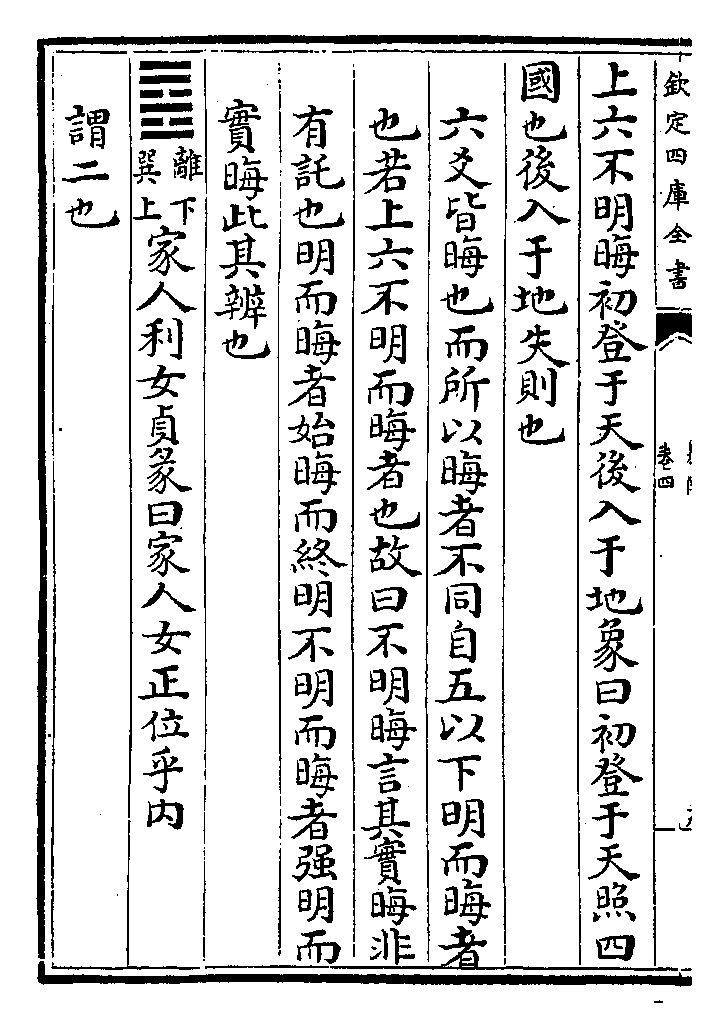 欽定四庫全書
卷四
上六不明晦初登于天後入于地象曰初登于天照四
國也後入于地失則也
六爻皆晦也而所以晦者不同自五以下明而晦者
也若上六不明而晦者也故曰不明晦言其實晦非
有託也明而晦者始晦而終明不明而晦者强明而
實晦此其辨也
䷤離下巽上家人利女貞彖曰家人女正位乎内
謂二也